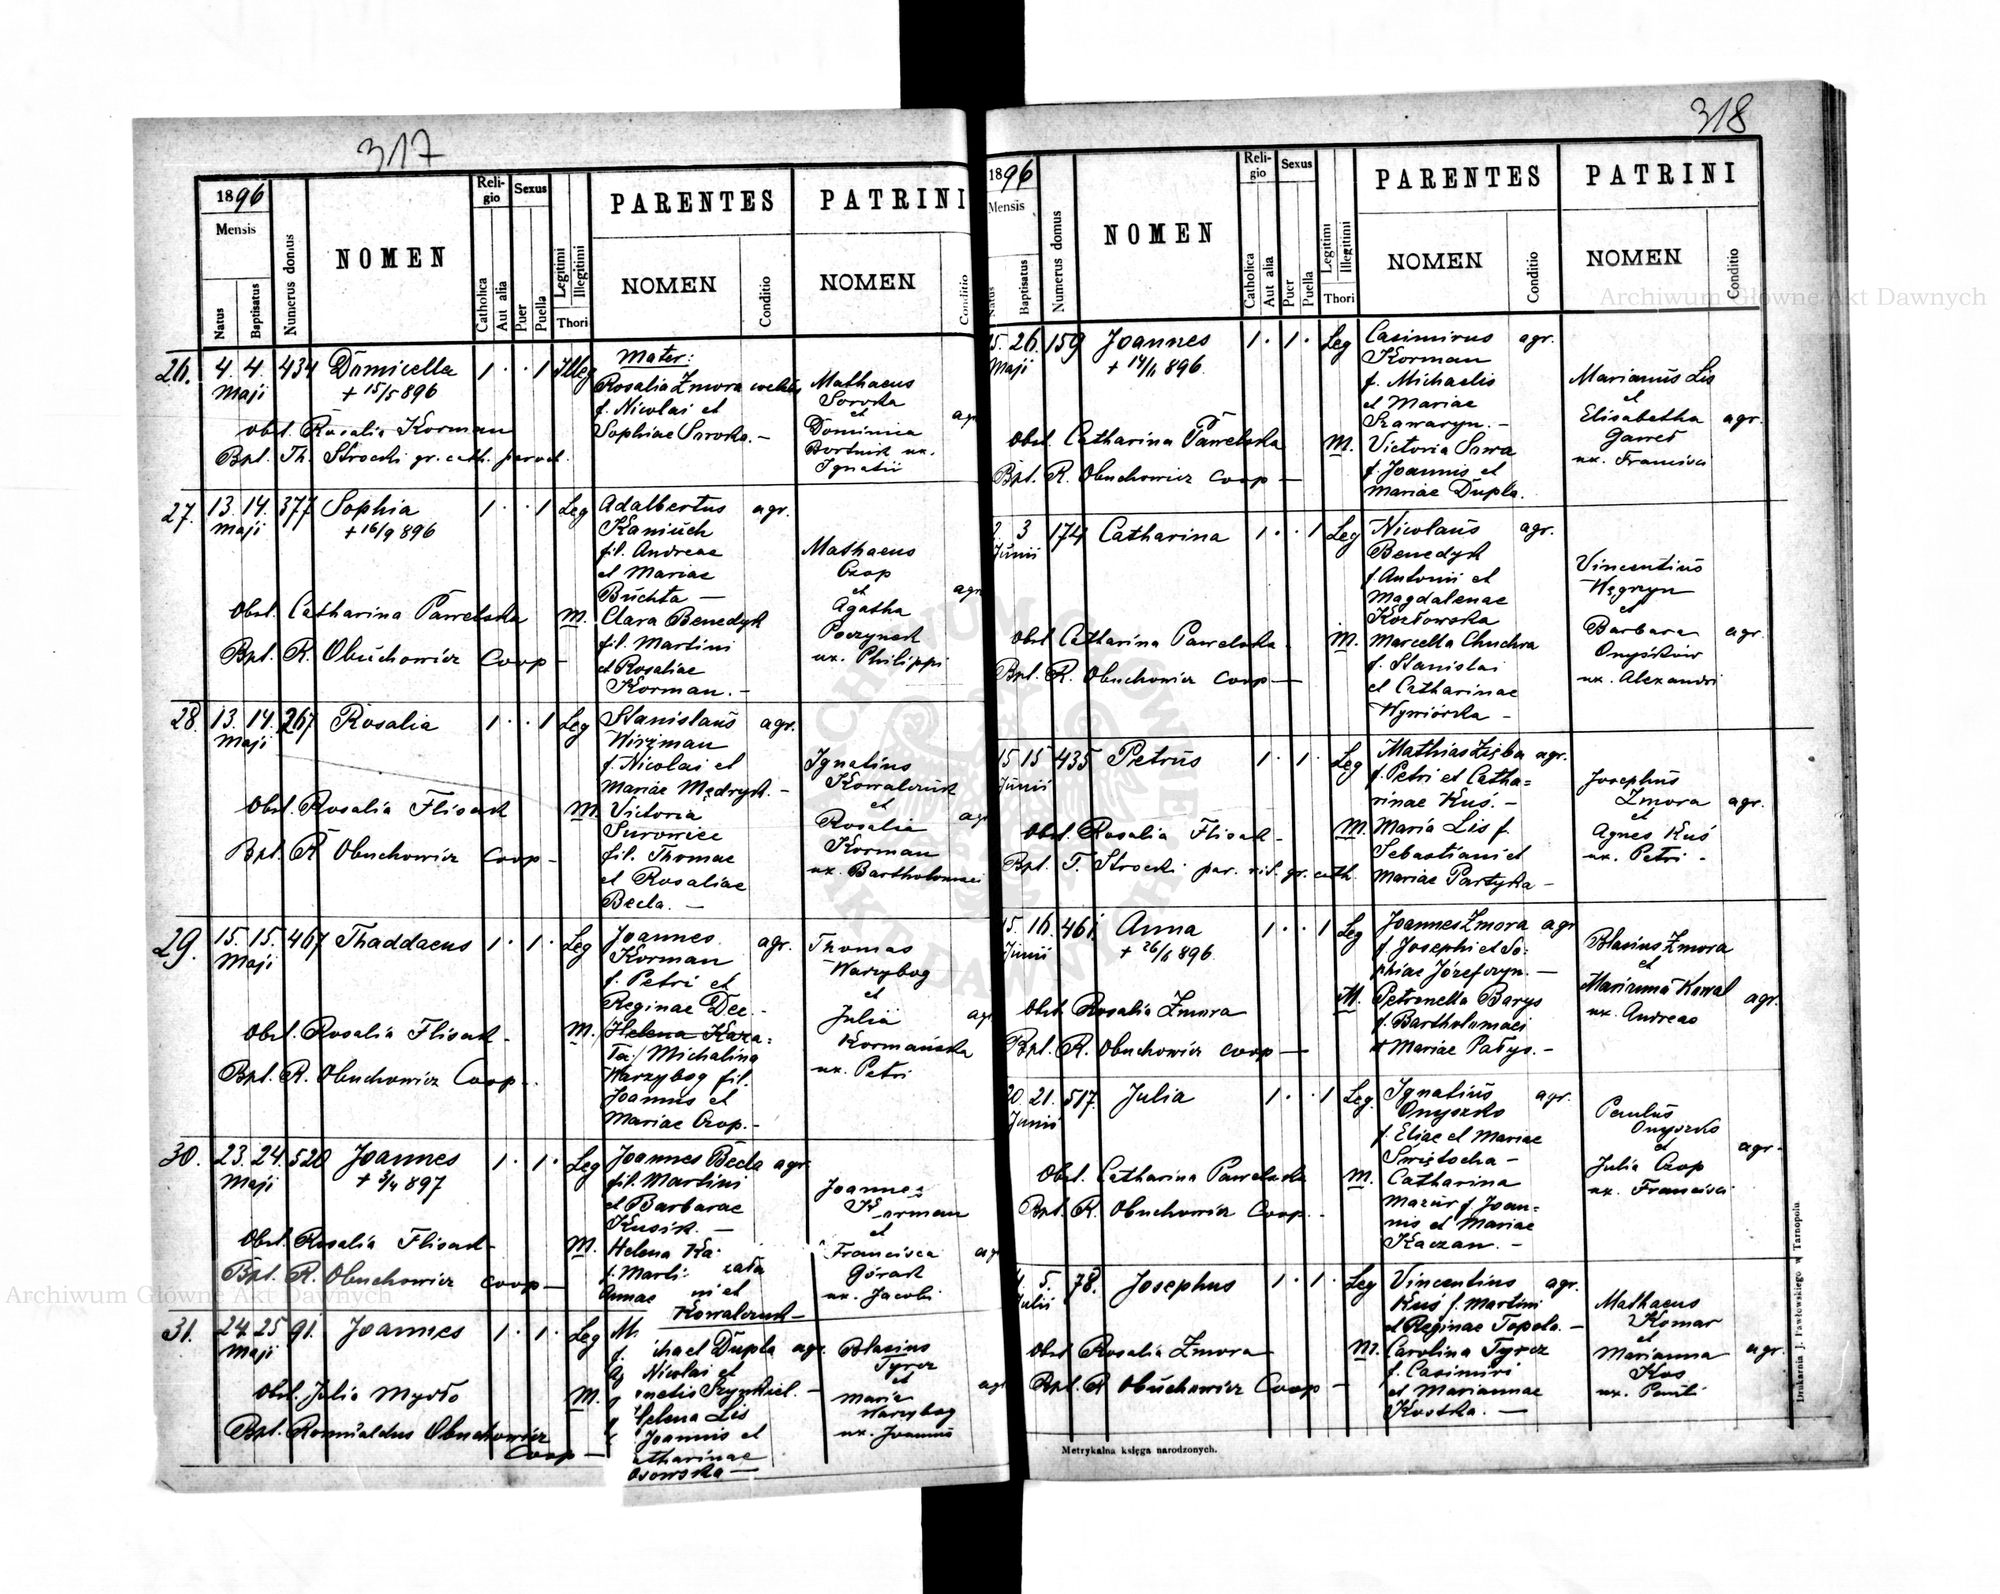 317
1896
Mensis
Natus
Baptisatus
Numerus domus
NOMEN
Religio
Catholica
Aut alia
Sexus
Puer
Puella
Legitimi
Illegitimi
Thori
PARENTES
NOMEN
Conditio
PATRINI
NOMEN
Conditio
26. 4. 4. 434 Domicella 1 · · 1 Illeg
Maji + 15/5 896
Obst. Rosalia Korman
Bpt. Th. Strocki gr. cath. paroch.
Mater:
Rosalia Zmora coelebs
f. Nicolai et
Sophiae Sowa. –
Mathaeus
Soroka
et agr.
Dominica
Bortnik ux.
Ignatii
27. 13. 14. 377 Sophia 1 · · 1 Leg
Maji + 16/9 896
Obst. Catharina Pawelska M.
Bpt. R. Obuchowicz Coop –
Adalbertus agr.
Kaniuch
fil. Andreae
et Mariae
Buchta –
Clara Benedyk
fil. Martini
et Rosaliae
Korman. –
Mathaeus
Czop
et agr.
Agatha
Poczynek
ux. Philippi
28. 13. 14. 267 Rosalia 1 · · 1 Leg
Maji
Obst. Rosalia Flisak M.
Bpt. R. Obuchowicz Coop –
Stanislaus agr.
Wirzman
f. Nicolai et
Mariae Mędryk. –
Victoria
Surowiec
fil. Thomae
et Rosaliae
Becla. –
Ignatius
Kowalczuk
et
Rosalia agr
Korman
ux. Bartholomaei
29. 15. 15. 467 Thaddaeus 1 · 1 · Leg
Maji
Obst. Rosalia Flisak – M.
Bpt. R. Obuchowicz Coop –
Joannes agr.
Korman
f. Petri et
Reginae Dec. –
Helena Kaza=
ła/ Michalina
Warzybog fil.
Joannis et
Mariae Czop. –
Thomas
Warzybog
et
Julia agr.
Kormańska
ux. Petri
30. 23. 24. 520 Joannes 1 · 1 · Leg
Maji + 3/4 897
Obst. Rosalia Flisak – M.
Bpt. R. Obuchowicz Coop –
Joannes Becla agr.
fil. Martini
et Barbarae
Kusik. –
Helena Ka- zała
f. Marti- ni et
Annae Kowalczuk –
Joannes
Korman
et
Francisca agr
Górak
ux. Jacobi
31. 24. 25 91. Joannes 1 · 1 · Leg
Maji
Obst. Julia Mydło M.
Bpt. Romualdus Obuchowicz
Coop –
chael Dupla agr.
Nicolai et
Szynkiel. –
Helena Lis
Joannis et
atharinae
Osowska –
Blasius
Tyrcz
et
Maria agr
Warzybog
ux. Joannis
318
1896
Mensis
Natus
Baptisatus
Numerus domus
NOMEN
Religio
Catholica
Aut alia
Sexus
Puer
Puella
Legitimi
Illegitimi
Thori
PARENTES
NOMEN
Conditio
PATRINI
NOMEN
Conditio
15. 26. 159 Joannes 1 · 1 · Leg
Maji
Obst. Catharina Pawelska M.
Bpt. R. Obuchowicz Coop –
Casimirus agr.
Korman
f. Michaelis
et Mariae
Szawaryn. –
Victoria Sowa
f. Joannis et
Mariae Dupla.
Marianus Lis
et
Elisabetha agr.
Gaweł
ux. Francisci
2. 3 174 Catharina 1 · · 1 Leg
Junii
Obst. Catharina Pawelska M.
Bpt. R. Obuchowicz Coop –
Nicolaus agr.
Benedyk
f. Antonii et
Magdalenae
Kozłowska
Marcella Chuchra
f. Stanislai
et Catharinae
Wywiórka –
Vincentius
Węgrzyn
et
Barbara agr.
Onyśków
ux. Alexandri
15 15 435 Petrus 1 · 1 · Leg
Junii
Obst. Rosalia Flisak – M.
Bpt. T. Strocki par. rit. gr. cath.
Mathias Zięba agr.
f. Petri et Catha=
rinae Kuś. –
Maria Lis f.
Sebastiani et
Mariae Partyka –
Josephus
Zmora agr.
et
Agnes Kuś
ux. Petri –
15. 16. 461. Anna 1 · · 1 Leg
Junii + 26/6 896.
Obst. Rosalia Zmora M.
Bpt. R. Obuchowicz Coop –
Joannes Zmora agr
f. Josephi et So-
phiae Józefczyn. –
Petronella Barys
f. Bartholomaei
et Mariae Patys. –
Blasius Zmora
et
Marianna Kowal agr.
ux. Andreae
20. 21. 517. Julia 1 · · 1 Leg.
Junii
Obst. Catharina Pawelska M.
Bpt. R. Obuchowicz Coop. –
Ignatius agr.
Onyszko
f. Eliae et Mariae
Świętocha –
Catharina
Mazur f. Joan=
nis et Mariae
Kaczan. –
Paulus
Onyszko
et agr.
Julia Czop
ux. Francisci
4. 5. 78. Josephus 1 · 1 · Leg
Julii
Obst. Rosalia Zmora M.
Bpt. R. Obuchowicz Coop –
Vincentius agr.
Kuś f. Martini
et Reginae Topola. –
Carolina Tyrcz
f. Casimiri
et Mariannae
Kostka. –
Mathaeus
Komar
et
Marianna agr.
Kos
ux. Pauli
Metrykalna księga narodzonych.
Drukarnia J. Pawłowskiego w Tarnopolu
Archiwum Główne Akt Dawnych
Archiwum Główne Akt Dawnych
ARCHIWUM GŁÓWNE AKT DAWNYCH